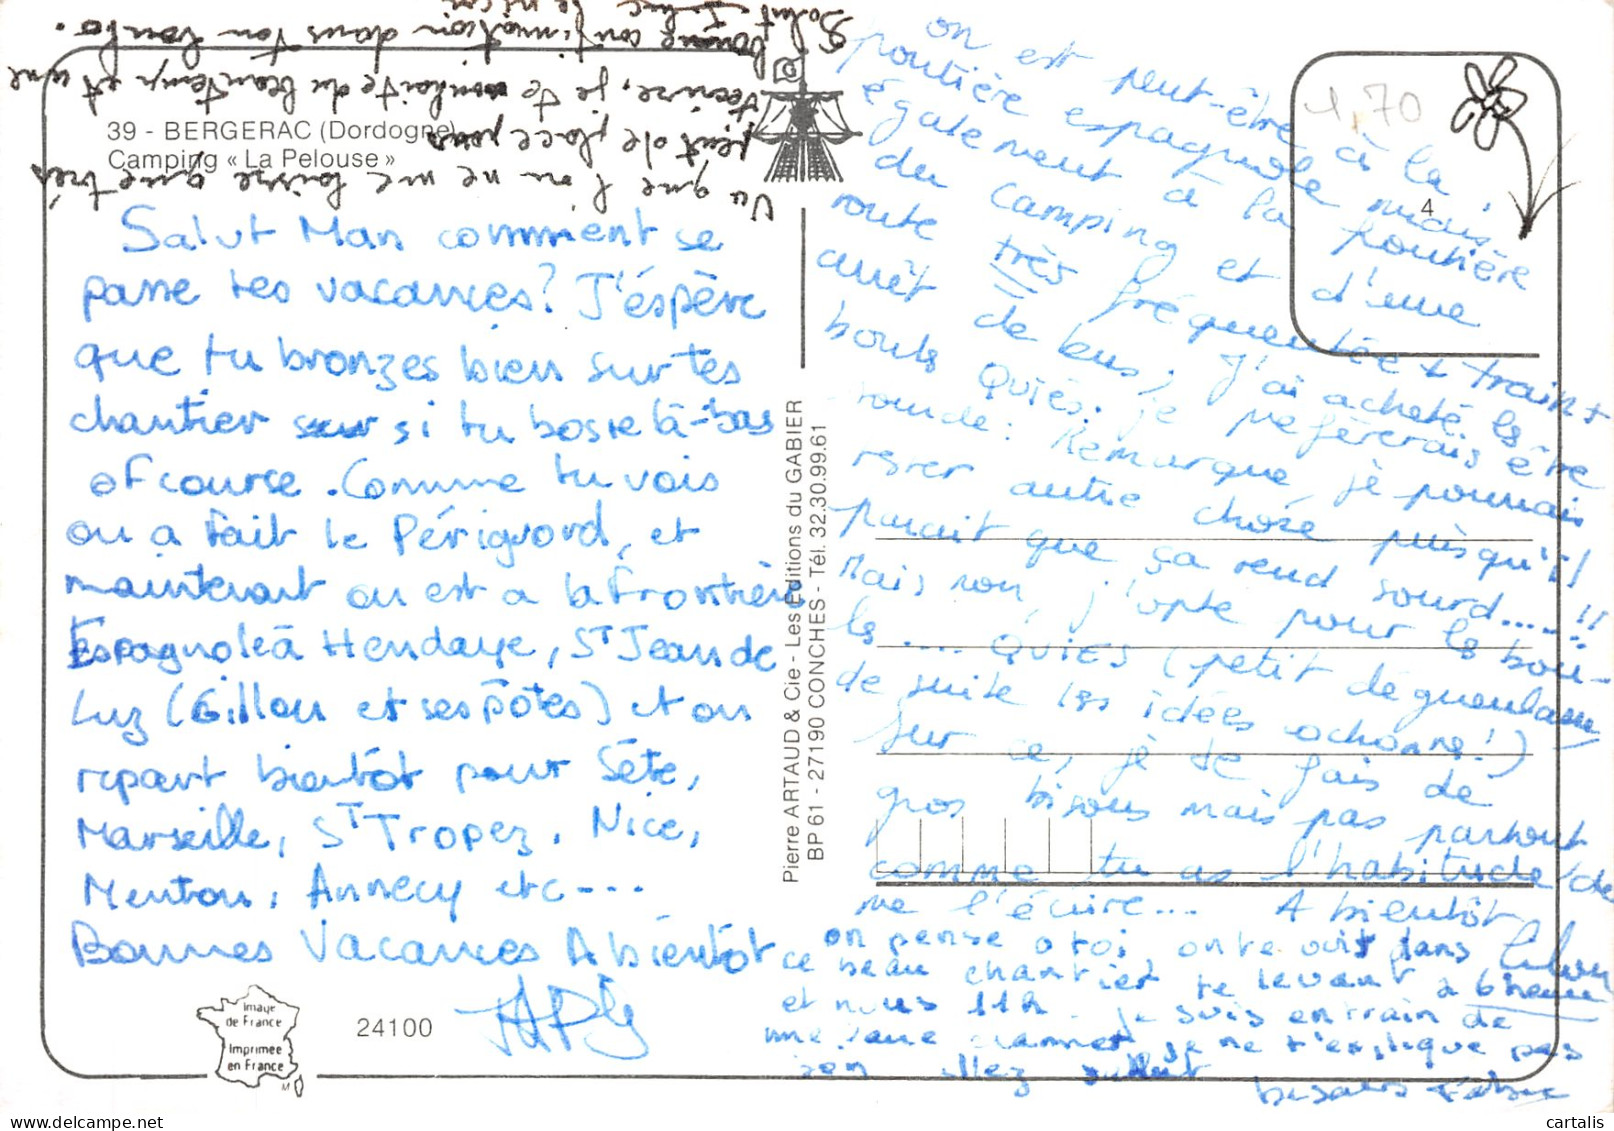 39 - BERGERAC (Dordogne)
Camping « La Pelouse »
Vu que l'on ne me laisse que très
peut de place pour
t'écrire, je te souhaite du beau temp et une
bonne continuation dans ton boulo.
Salut
Salut Man comment se
passe tes vacances? J'éspère
que tu bronzes bien sur tes
chantier si tu bosse là-bas
of course. Comme tu vois
on a fait le Périgord, et
maintenant on est a la frontière
Espagnole à Hendaye, St Jean de
Luz (Gillou et ses pôtes) et on
repart bientôt pour Sète,
Marseille, St Tropez, Nice,
Menton, Annecy etc---
Bonnes Vacances A bientôt
Image
de France
Imprimée
en France
24100
Pierre ARTAUD & Cie - Les Editions du GABIER
BP 61 - 27190 CONCHES - Tél. 32.30.99.61
1,70
4
on est peut-être à la
frontière espagnole mais
également à la frontière
du camping et d'une
route très fréquentée + train +
arrêt de bus, J'ai acheté les
bouls Quiés. je préfèrerais être
ronde! Remarque, je pourrais
rester autre chose puisqu'il
parait que ça rend sourd......!!
Mais non, j'opte pour les bou-
les .... QUIES (petit dégueulasse
de suite les idées ochonne!)
Sur ce, je te fais de
gros bisous mais pas partout
comme tu as l'habitude de
me l'écrire... A bientôt
on pense a toi, on te voit dans
ce beau chantier te levant à 6 heure
et nous 11h. Je suis en train de
me je ne t'explique pas
allez salut
bisous